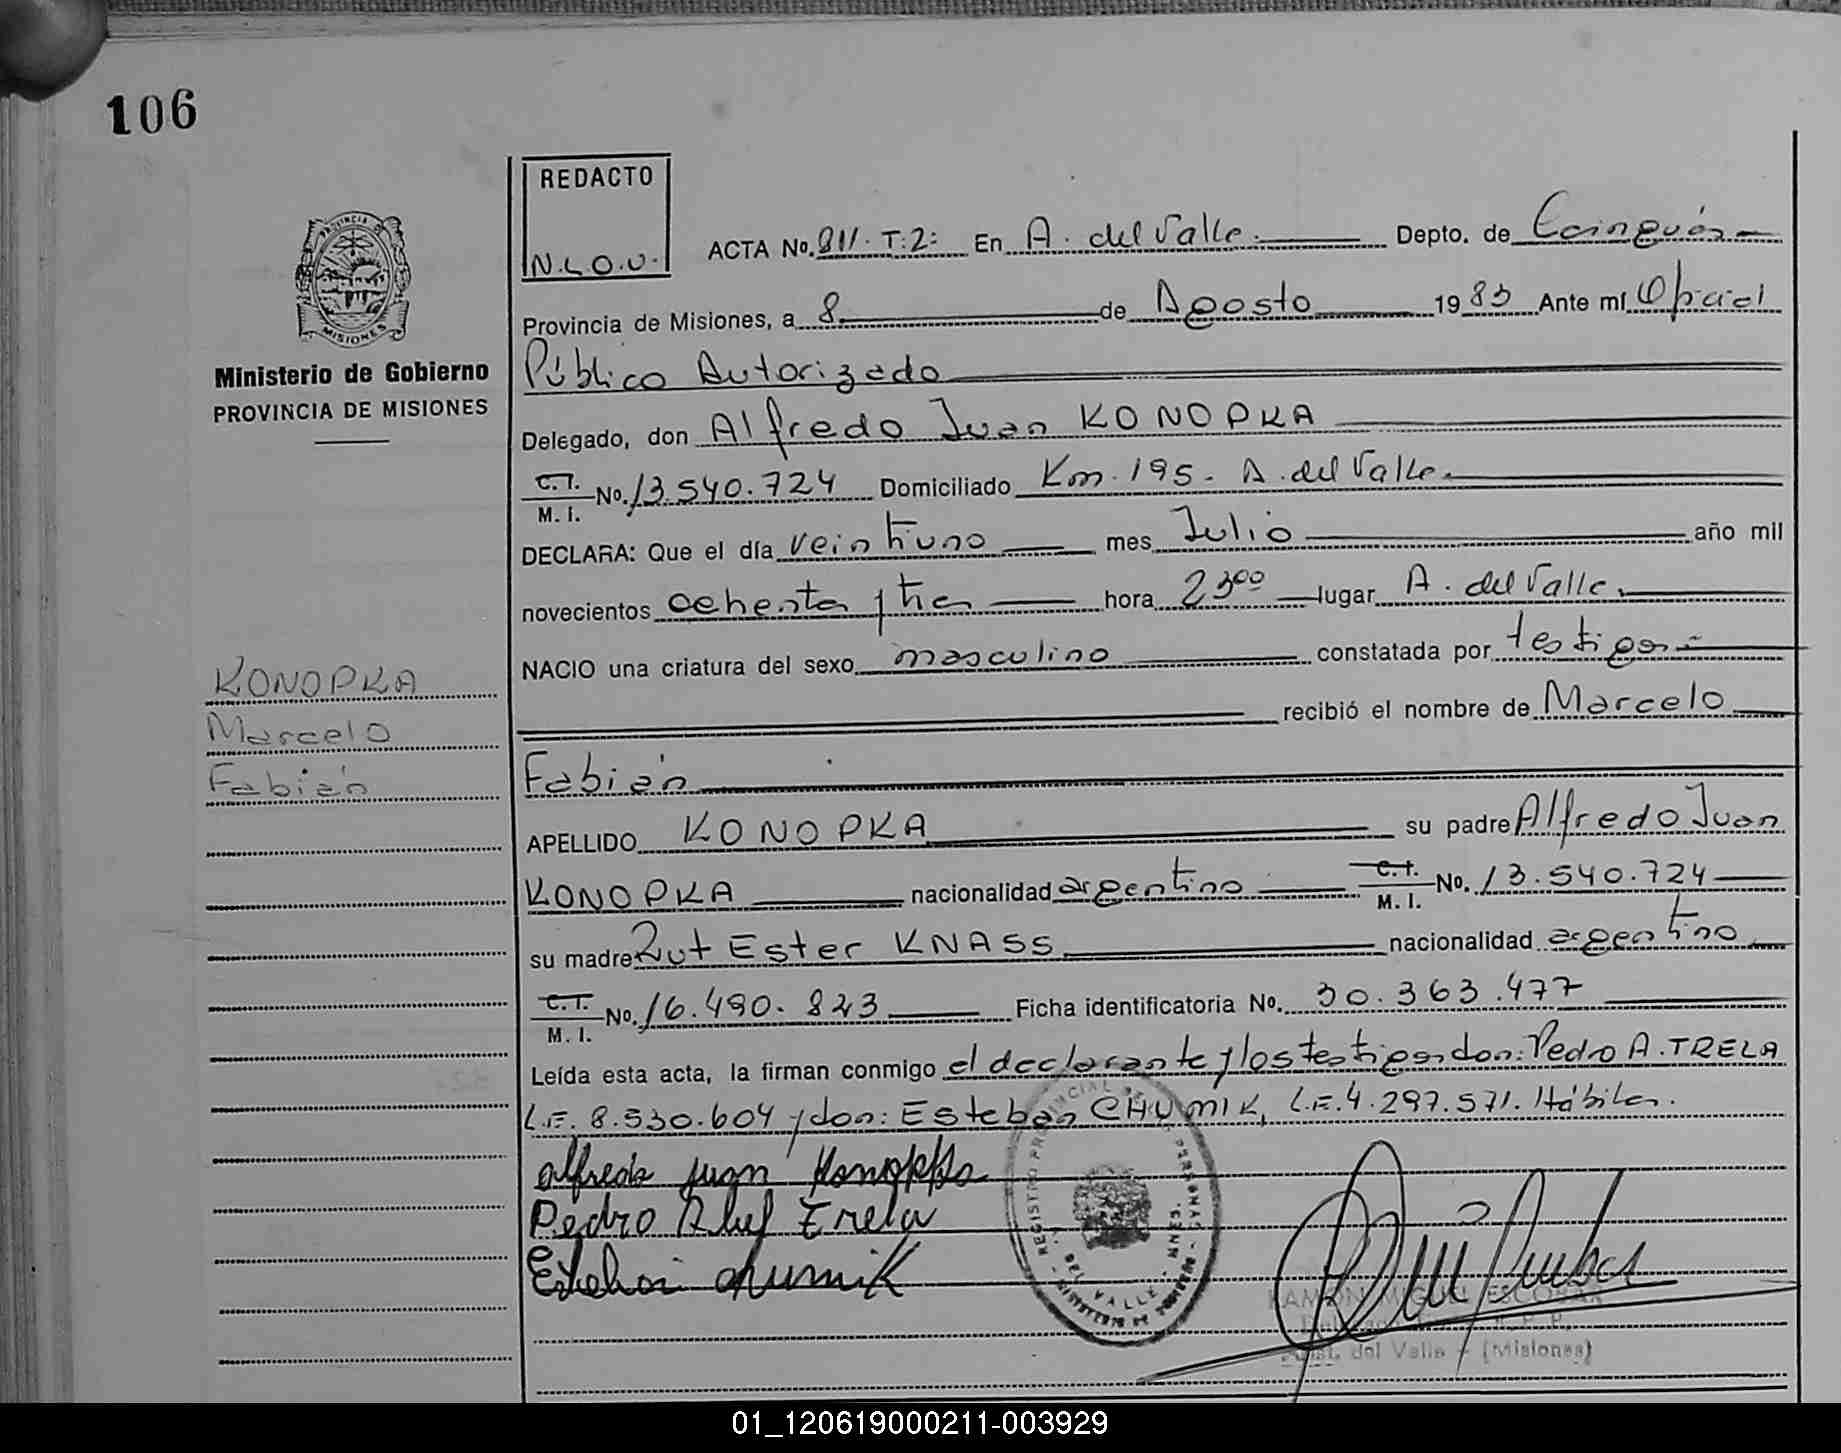 106
REDACTO
N.L.O.V.
ACTA No. 811. T:2: En A. del Valle. Depto. de Cainguás
Provincia de Misiones, a 8 de Agosto 1983 Ante mí Oficial
Público Autorizado
Delegado, don Alfredo Juan KONOPKA
C.I. M.I. No. 13.540.724 Domiciliado Km. 195. A. del Valle.
DECLARA: Que el día veintiuno mes Julio año mil
novecientos ochenta y tres hora 23⁰⁰ lugar A. del Valle.
NACIO una criatura del sexo masculino constatada por testigos
recibió el nombre de Marcelo
Fabián
APELLIDO KONOPKA su padre Alfredo Juan
KONOPKA nacionalidad argentino C.I. M.I. No. 13.540.724
su madre Rut Ester KNASS nacionalidad argentino
C.I. M.I. No. 16.490.823 Ficha identificatoria No. 30.363.477
Leída esta acta, la firman conmigo el declarante y los testigos don: Pedro A. TRELA
L.E. 8.530.604 y don: Esteban CHUMIK, L.E. 4.297.571. Hábiles.
alfredo juan Konopka
Pedro Trela
Esteban chumik
REGISTRO PROVINCIAL DE LAS PERSONAS
DEL VALLE - MNES.
RAMON MIGUEL ESCOBAR
Arist. del Valle - (Misiones)
PROVINCIA
MISIONES
Ministerio de Gobierno
PROVINCIA DE MISIONES
KONOPKA
Marcelo
Fabián
01_120619000211-003929